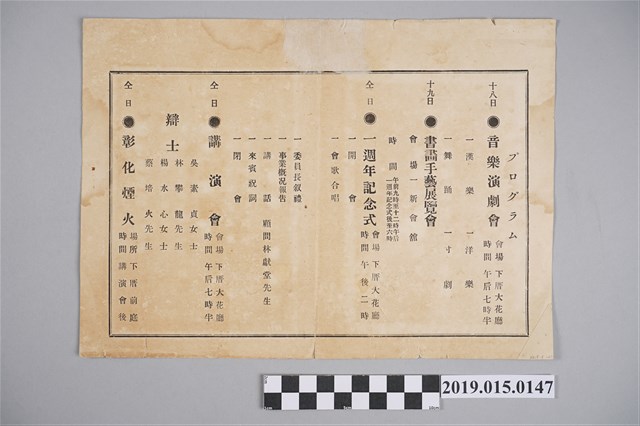 プログラム
十八日 ●音樂演劇會 會場 下厝大花廳 時間 午后七時半
一漢樂 一洋樂
一舞踊 一寸劇
十九日 ●書畵手藝展覽會
會場 一新會舘
時間 午前九時至十二時午后 一週年記念式後至六時
仝日 ●一週年記念式 會場 下厝大花廳 時間 午後二時
一開會
一會歌合唱
一委員長叙禮
一事業概況報告
一講話 顧問林獻堂先生
一來賓祝詞
一閉會
仝日 ●講演會 會場 下厝大花廳 時間 午后七時半
辯士
吳素貞女士
林攀龍先生
楊水心女士
蔡培火先生
仝日 ●彰化煙火 場所 下厝前庭 時間 講演會後
2019.015.0147